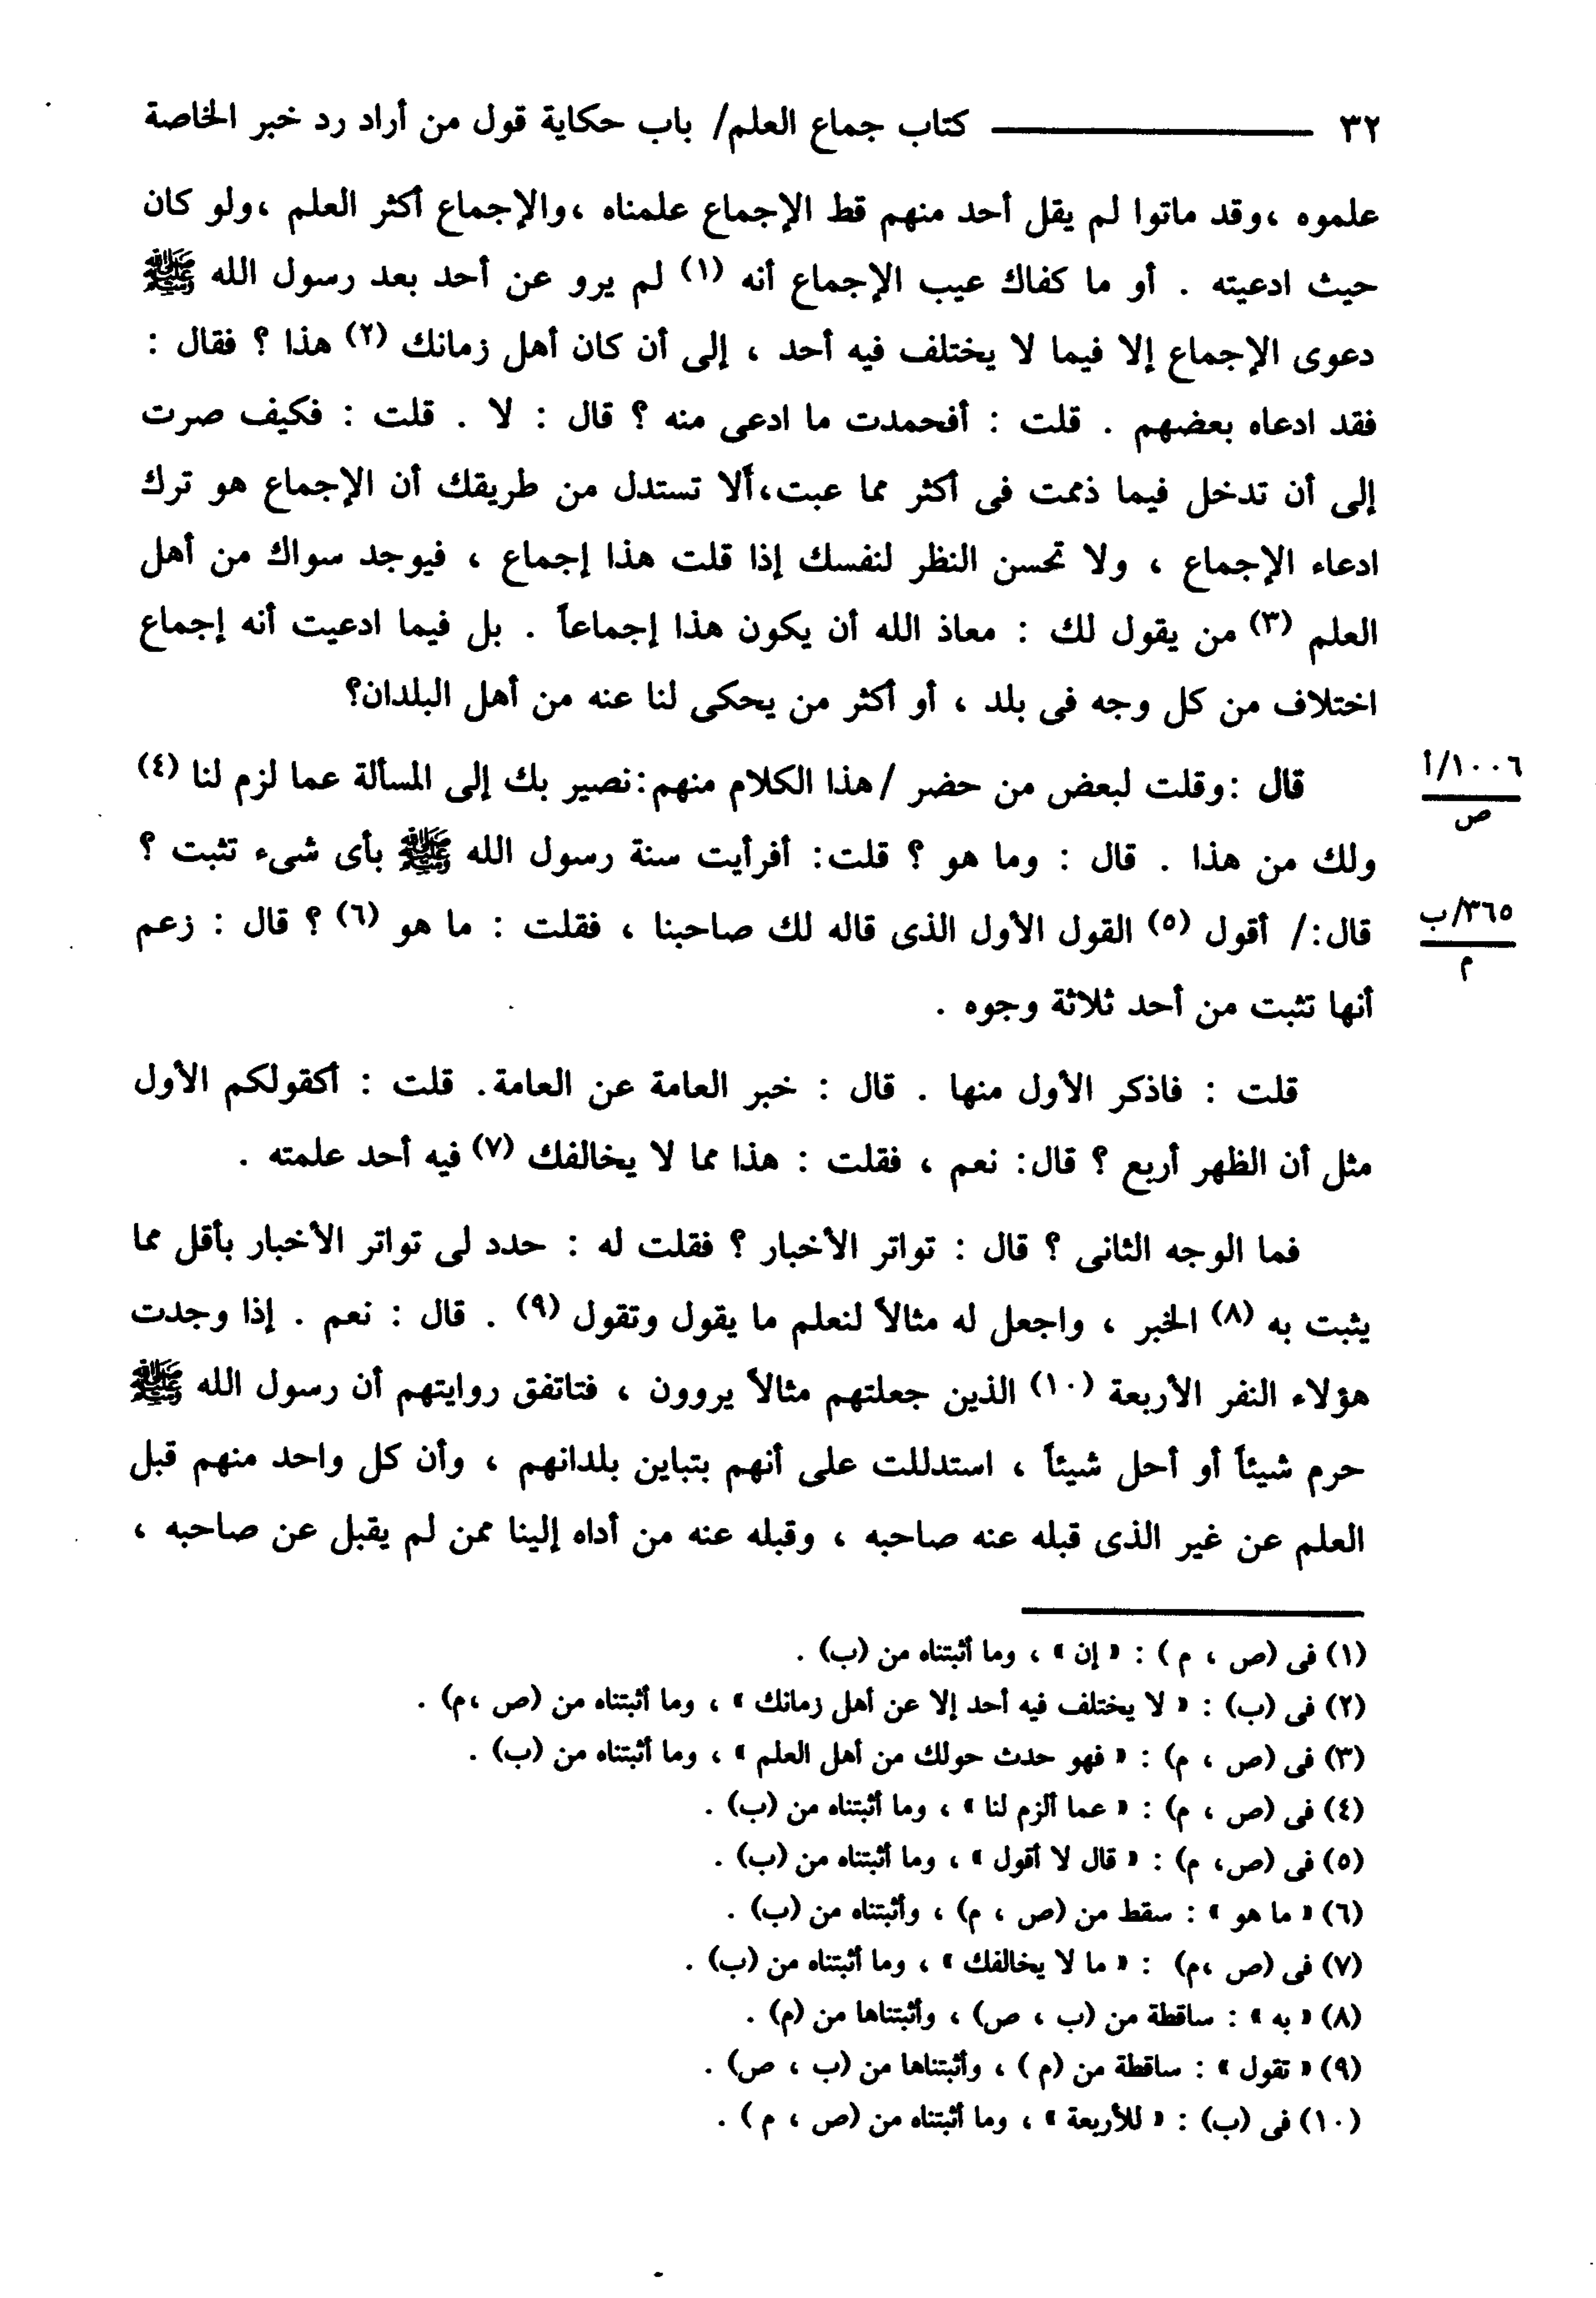 ٣٢ ــــــــــــــــــ كتاب جماع العلم/ باب حكاية قول من أراد رد خبر الخاصة
علموه ،وقد ماتوا لم يقل أحد منهم قط الإجماع علمناه ،والإجماع أكثر العلم ،ولو كان
حيث ادعيته . أو ما كفاك عيب الإجماع أنه (١) لم يرو عن أحد بعد رسول الله ﷺ
دعوى الإجماع إلا فيما لا يختلف فيه أحد ، إلى أن كان أهل زمانك (٢) هذا ؟ فقال :
فقد ادعاه بعضهم . قلت : أفحمدت ما ادعى منه ؟ قال : لا . قلت : فكيف صرت
إلى أن تدخل فيما ذممت فى أكثر مما عبت،ألا تستدل من طريقك أن الإجماع هو ترك
ادعاء الإجماع ، ولا تحسن النظر لنفسك إذا قلت هذا إجماع ، فيوجد سواك من أهل
العلم (٣) من يقول لك : معاذ الله أن يكون هذا إجماعاً . بل فيما ادعيت أنه إجماع
اختلاف من كل وجه فى بلد ، أو أكثر من يحكى لنا عنه من أهل البلدان؟
قال :وقلت لبعض من حضر /هذا الكلام منهم:نصير بك إلى المسألة عما لزم لنا (٤)
١٠٠٦/أ
ص
ولك من هذا . قال : وما هو ؟ قلت: أفرأيت سنة رسول الله ﷺ بأى شىء تثبت ؟
قال:/ أقول (٥) القول الأول الذى قاله لك صاحبنا ، فقلت : ما هو (٦) ؟ قال : زعم
٣٦٥/ب
م
أنها تثبت من أحد ثلاثة وجوه .
قلت : فاذكر الأول منها . قال : خبر العامة عن العامة. قلت : أكقولكم الأول
مثل أن الظهر أربع ؟ قال: نعم ، فقلت : هذا مما لا يخالفك (٧) فيه أحد علمته .
فما الوجه الثانى ؟ قال : تواتر الأخبار ؟ فقلت له : حدد لى تواتر الأخبار بأقل مما
يثبت به (٨) الخبر ، واجعل له مثالاً لنعلم ما يقول وتقول (٩) . قال : نعم . إذا وجدت
هؤلاء النفر الأربعة (١٠) الذين جعلتهم مثالاً يروون ، فتاتفق روايتهم أن رسول الله ﷺ
حرم شيئاً أو أحل شيئاً ، استدللت على أنهم بتباين بلدانهم ، وأن كل واحد منهم قبل
العلم عن غير الذى قبله عنه صاحبه ، وقبله عنه من أداه إلينا ممن لم يقبل عن صاحبه ،
(١) فى (ص ، م ) : « إن » ، وما أثبتناه من (ب) .
(٢) فى (ب) : « لا يختلف فيه أحد إلا عن أهل زمانك » ، وما أثبتناه من (ص ،م) .
(٣) فى (ص ، م) : « فهو حدث حولك من أهل العلم » ، وما أثبتناه من (ب) .
(٤) فى (ص ، م) : « عما ألزم لنا » ، وما أثبتناه من (ب) .
(٥) فى (ص، م) : « قال لا أقول » ، وما أثبتناه من (ب) .
(٦) « ما هو » : سقط من (ص ، م) ، وأثبتناه من (ب) .
(٧) فى (ص ،م) : « ما لا يخالفك » ، وما أثبتناه من (ب) .
(٨) « به » : ساقطة من (ب ، ص) ، وأثبتناها من (م) .
(٩) « تقول » : ساقطة من (م ) ، وأثبتناها من (ب ، ص) .
(١٠) فى (ب) : « للأربعة » ، وما أثبتناه من (ص ، م ) .